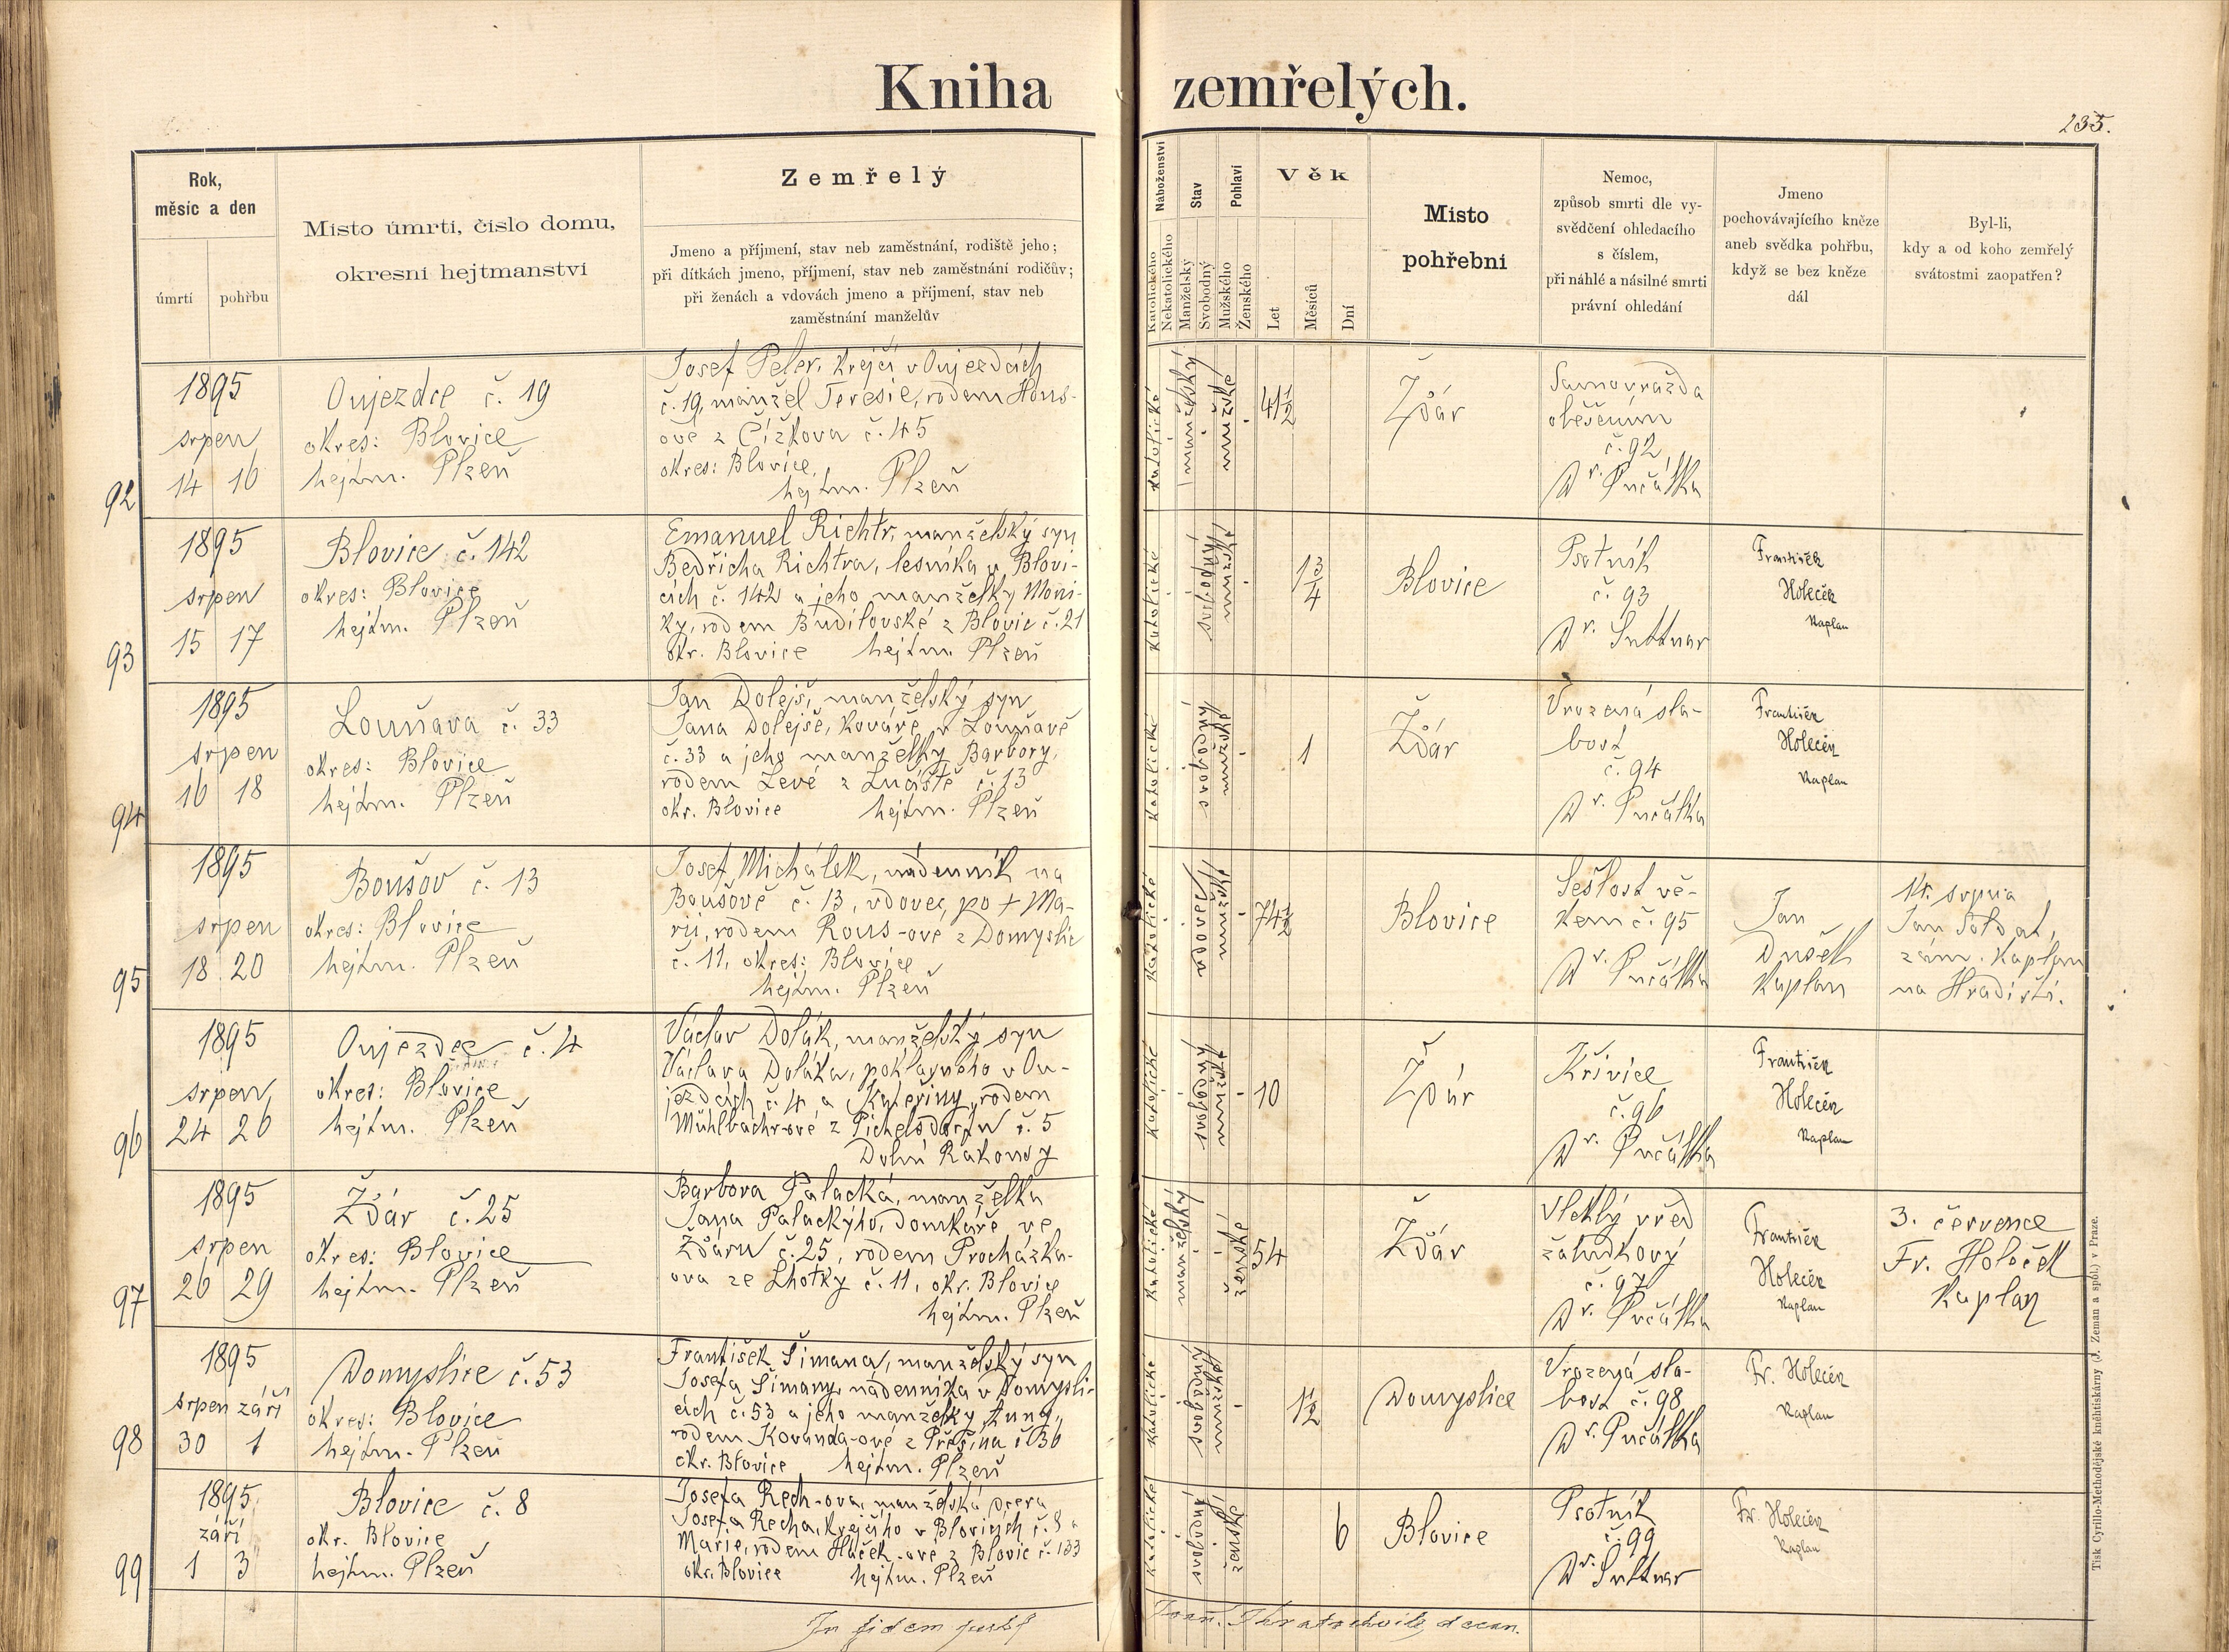 Kniha zemřelých.
235.
Rok,
měsíc a den
úmrtí
pohřbu
Místo úmrtí, číslo domu,
okresní hejtmanství
Zemřelý
Jmeno a příjmení, stav neb zaměstnání, rodiště jeho;
při dítkách jmeno, příjmení, stav neb zaměstnání rodičův;
při ženách a vdovách jmeno a přijmení, stav neb
zaměstnání manželův
Náboženství
Katolického
Nekatolického
Stav
Manželský
Svobodný
Pohlaví
Mužského
Ženského
Věk
Let
Měsíců
Dní
Místo
pohřební
Nemoc,
způsob smrti dle vy-
svědčení ohledacího
s číslem,
při náhlé a násilné smrti
právní ohledání
Jmeno
pochovávajícího kněze
aneb svědka pohřbu,
když se bez kněze
dál
Byl-li,
kdy a od koho zemřelý
svátostmi zaopatřen?
92
1895
srpen
14 16
Oujezdce č. 19
okres: Blovice
hejtm. Plzeň
Josef Peler, krejčí v Oujezdcích
č. 19, manžel Teresie, rodem Hous-
ové z Čížkova č. 45
okres: Blovice,
hejtm. Plzeň
katolické
manželský
mužské
41 1/2
Žďár
Samovražda
oběšením
č. 92,
Dr. Pučálka
93
1895
srpen
15 17
Blovice č. 142
okres: Blovice
hejtm. Plzeň
Emanuel Richtr, manželský syn
Bedřicha Richtra, lesníka v Blovi-
cích č. 142 a jeho manželky Moni-
ky, rodem Budilovské z Blovic č. 21
okr. Blovice hejtm. Plzeň
katolické
svobodný
mužské
1 3/4
Blovice
Psotník
č. 93
Dr. Suttnar
František
Holeček
Kaplan
94
1895
srpen
16 18
Louňava č. 33
okres: Blovice
hejtm. Plzeň
Jan Dolejš, manželský syn
Jana Dolejše, kováře v Louňavě
č. 33 a jeho manželky Barbory,
rodem Levé z Lučiště č. 13
okr. Blovice hejtm. Plzeň
katolické
svobodný
mužské
1
Žďár
Vrozená sla-
bost
č. 94
Dr. Pučálka
František
Holeček
Kaplan
95
1895
srpen
18 20
Boušov č. 13
okres: Blovice
hejtm. Plzeň
Josef Michálek, nádenník na
Boušově č. 13, vdovec, po + Ma-
rii, rodem Rous-ové z Domyslic
č. 11, okres: Blovice
hejtm. Plzeň
katolické
vdovec
mužské
74 1/2
Blovice
Sešlost vě-
kem č. 95
Dr. Pučálka
Jan
Dušek
Kaplan
14. srpna
Jan Soldat,
zám. Kaplan
na Hradišti.
96
1895
srpen
24 26
Oujezdce č. 4
okres: Blovice
hejtm. Plzeň
Václav Dolák, manželský syn
Václava Doláka, poklasného v Ou-
jezdcích č. 4 a Kateřiny, rodem
Mühlbachr-ové z Pichelsdorfu č. 5
Dolní Rakousy
katolické
svobodný
mužské
10
Žďár
Křivice
č. 96
Dr. Pučálka
František
Holeček
Kaplan
97
1895
srpen
26 29
Žďár č. 25
okres: Blovice
hejtm. Plzeň
Barbora Palacká, manželka
Jana Palackýho, domkáře ve
Žďáru č. 25, rodem Procházka-
ova ze Lhotky č. 11, okr. Blovice
hejtm. Plzeň
katolické
manželský
ženské
54
Žďár
Vleklý vřed
žaludkový
č. 97
Dr. Pučálka
František
Holeček
Kaplan
3. července
Fr. Holeček
Kaplan
98
1895
srpen září
30 1
Domyslice č. 53
okres: Blovice
hejtm. Plzeň
František Šimana, manželský syn
Josefa Šimany, nádenníka v Domysli-
cích č. 53 a jeho manželky Anny,
rodem Kovanda-ové z Přešína č. 36
okr. Blovice hejtm. Plzeň
katolické
svobodný
mužské
1 1/2
Domyslice
Vrozená sla-
bost č. 98
Dr. Pučálka
Fr. Holeček
Kaplan
99
1895
září
1 3
Blovice č. 8
okr. Blovice
hejtm. Plzeň
Josefa Rech-ova, manželská dcera
Josefa Recha, krejčího v Blovicích č. 8 a
Marie, rodem Háček-ové z Blovic č. 133
okr. Blovice hejtm. Plzeň
katolické
svobodný
ženské
6
Blovice
Psotník
č. 99
Dr. Suttnar
Fr. Holeček
Kaplan
In fidem
decan.
Tisk Cyrillo-Methodějské knihtiskárny (J. Zeman a spol.) v Praze.